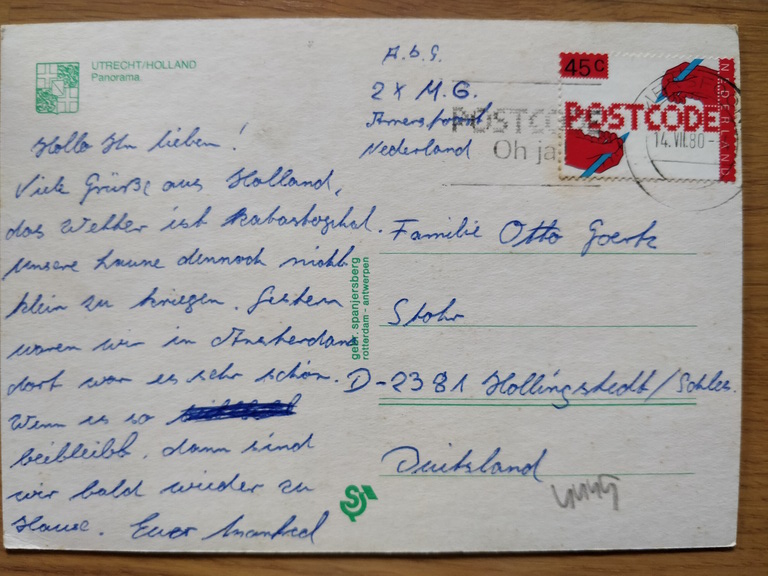 UTRECHT/HOLLAND
Panorama.
Hallo Ihr lieben!
Viele Grüße aus Holland,
das Wetter ist katastophal.
Unsere Laune dennoch nicht
klein zu kriegen. Gestern
waren wir in Amsterdam
dort war es sehr schön.
Wenn es so
beibleibt, dann sind
wir bald wieder zu
Hause. Euer Manfred
gebr. spanjersberg
rotterdam - antwerpen
A.b.s.
2 x M.G.
Amersfoort
Nederland
POSTCODE
Oh ja
45c
POSTCODE
NEDERLAND
14.VII.80
Familie Otto Goertz
Stohr
D-2381 Hollingstedt/Schles.
Duitsland